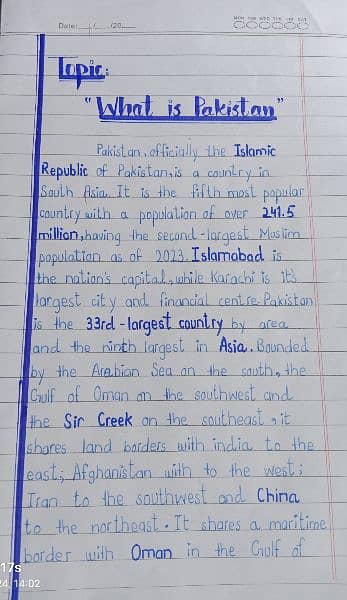 Date: / /20
MON TUE WED THU FRI SAT
Topic:
"What is Pakistan"
Pakistan, officially the Islamic
Republic of Pakistan, is a country in
South Asia. It is the fifth most popular
country with a population of over 241.5
million, having the second-largest Muslim
population as of 2023. Islamabad is
the nation's capital, while Karachi is it's
largest city and financial centre. Pakistan
is the 33rd-largest country by area
and the ninth largest in Asia. Bounded
by the Arabian Sea on the south, the
Gulf of Oman on the southwest and
the Sir Creek on the southeast, it
shares land borders with india to the
east; Afghanistan with to the west;
Iran to the southwest and China
to the northeast. It shares a maritime
border with Oman in the Gulf of
17s
24, 14:02